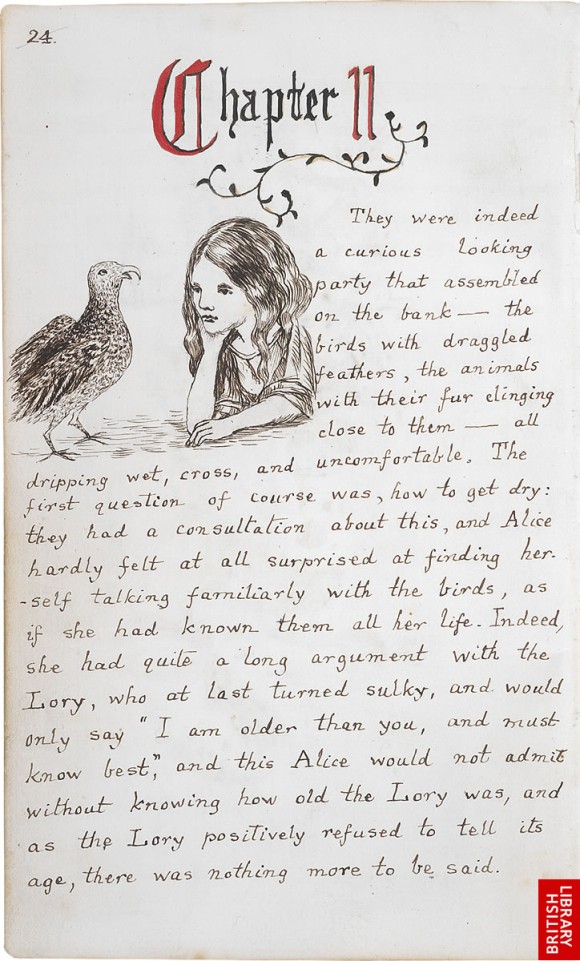 24.
Chapter II
They were indeed
a curious looking
party that assembled
on the bank — the
birds with draggled
feathers, the animals
with their fur clinging
close to them — all
dripping wet, cross, and uncomfortable. The
first question of course was, how to get dry:
they had a consultation about this, and Alice
hardly felt at all surprised at finding her-
-self talking familiarly with the birds, as
if she had known them all her life. Indeed,
she had quite a long argument with the
Lory, who at last turned sulky, and would
only say "I am older than you, and must
know best," and this Alice would not admit
without knowing how old the Lory was, and
as the Lory positively refused to tell its
age, there was nothing more to be said.
BRITISH
LIBRARY